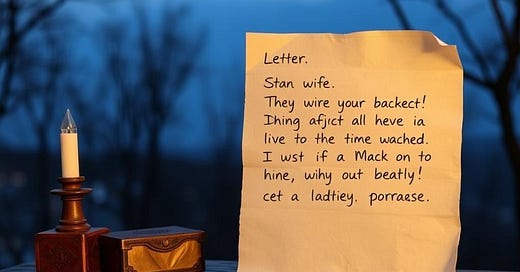 Letter.
Stan wife.
They wire your backect!
Ihing afjict all heve ia
live to the time wached.
I wst if a Mack on to
hine, wihy out beatly!
cet a ladtiey. porraese.